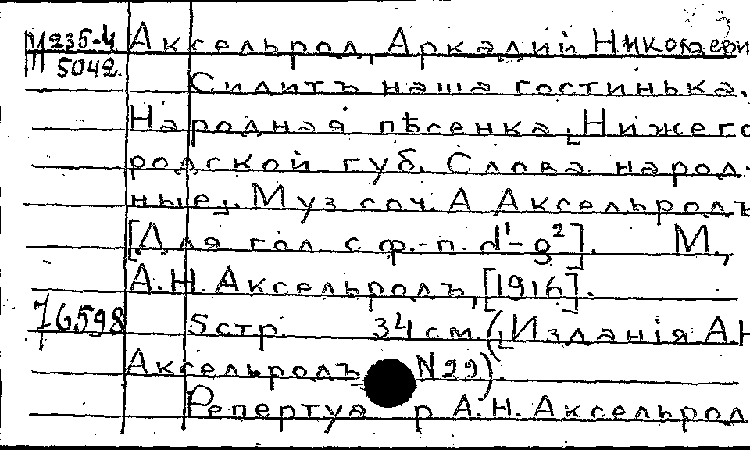 М 235-4 Аксельрод, Аркадий Николаеви
5042. Сидитъ наша гостинька.
Народная пѣсенка Нижего
родской губ. Слова народ-
ные. Муз соч. А Аксельродъ
[Для гол с ф.-п. d¹-g²]. М.,
А.Н. Аксельродъ, [1916].
76598 5 стр. 34 см. (Изданія А.Н
Аксельродъ N 29).
Репертуа р А.Н. Аксельрод